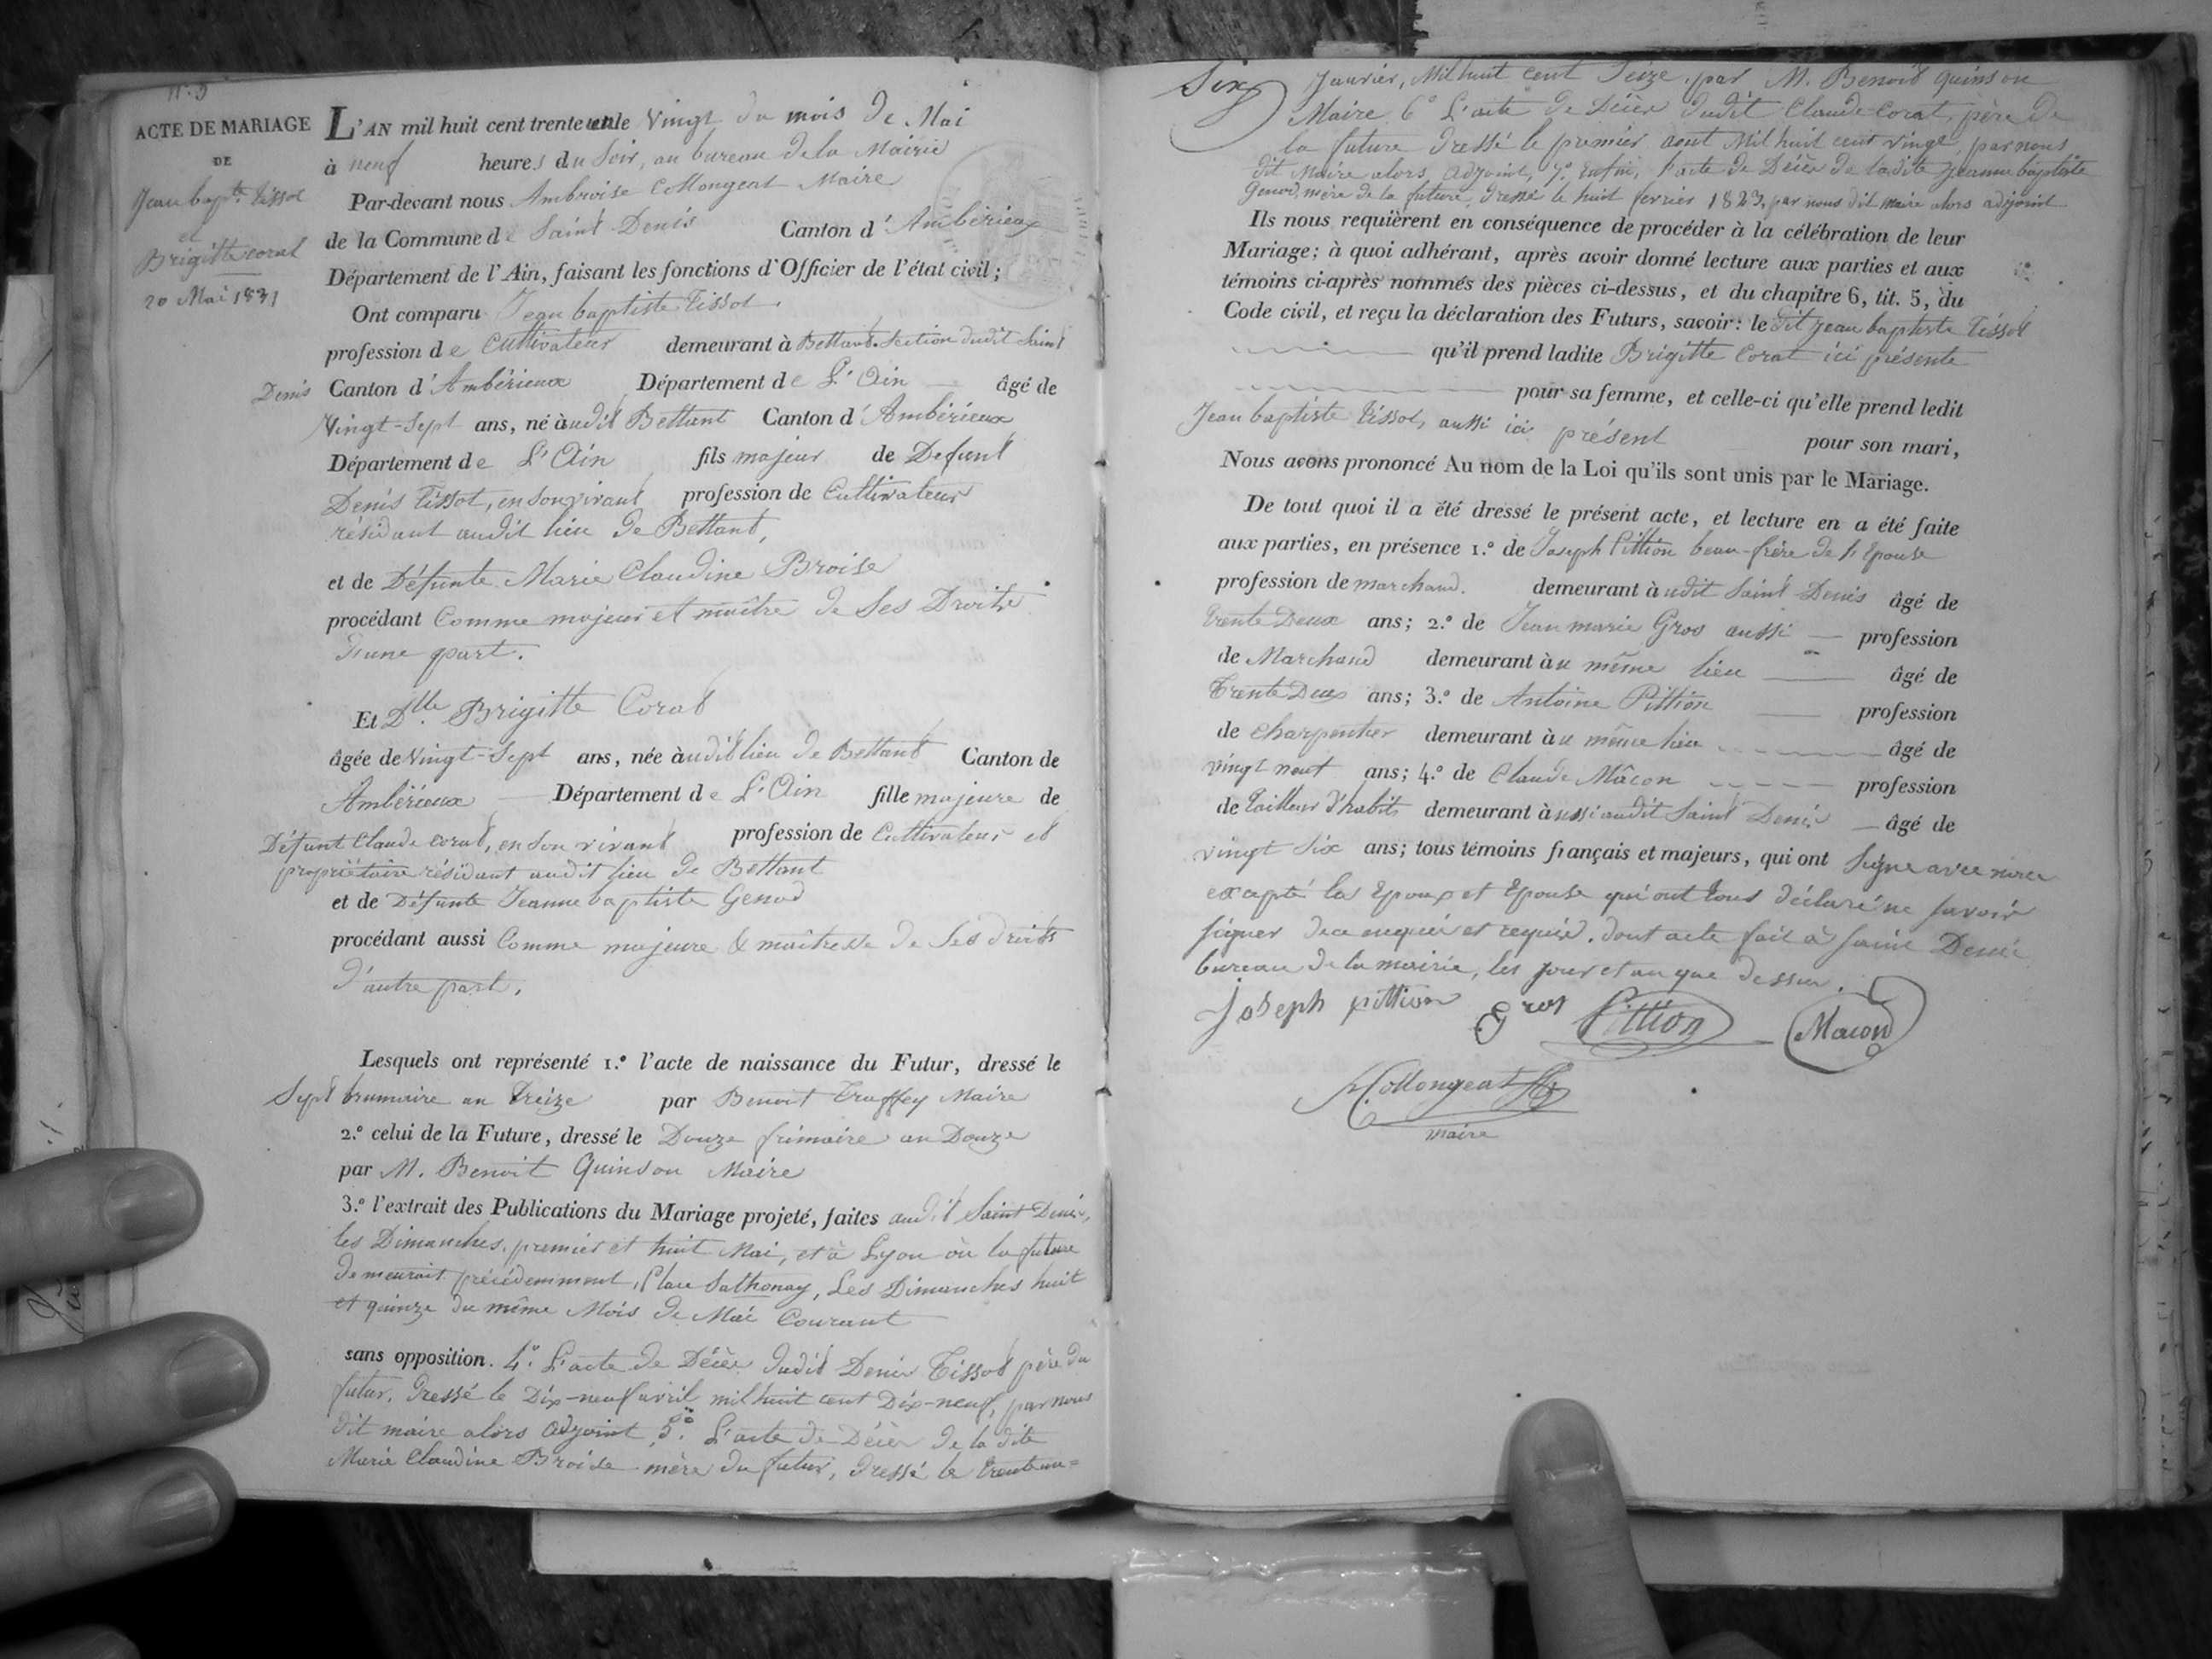 N.º 5
ACTE DE MARIAGE
DE
Jean bap.te Tissot
et
Brigitte Corat
20 Mai 1831
L'AN mil huit cent trente un le Vingt du mois de Mai
à neuf heures du Soir, au bureau de la Mairie
Par-devant nous Ambroise Collongeat Maire
de la Commune de Saint Denis Canton d'Ambérieux
Département de l'Ain, faisant les fonctions d'Officier de l'état civil;
Ont comparu Jean baptiste Tissot.
profession de Cultivateur demeurant à Bettant Section dudit Saint
Denis Canton d'Ambérieux Département de L'Ain âgé de
Vingt-Sept ans, né audit Bettant Canton d'Ambérieux
Département de L'Ain fils majeur de Defunt
Denis Tissot, en son vivant profession de Cultivateur
résidant audit lieu de Bettant,
et de Défunte Marie Claudine Broise
procédant Comme majeur et maître de Ses Droits
d'une part.
Et D.lle Brigitte Corat
âgée de Vingt-Sept ans, née audit lieu de Bettant Canton de
Ambérieux Département de L'Ain fille majeure de
Défunt Claude Corat, en Son vivant profession de Cultivateur et
propriétaire résidant audit lieu de Bettant
et de Défunte Jeanne baptiste Genod
procédant aussi Comme majeure & maîtresse de Ses droits
d'autre part.
Lesquels ont représenté 1.º l'acte de naissance du Futur, dressé le
Sept brumaire an treize par Benoit Truffey Maire
2.º celui de la Future, dressé le Douze frimaire an Douze
par M. Benoit Quinson Maire
3.º l'extrait des Publications du Mariage projeté, faites audit Saint Denis,
les Dimanches, premier et huit Mai, et à Lyon où la future
demeurait précédemment, Place Sathonay, Les Dimanches huit
et quinze du même Mois de Mai Courant
sans opposition. 4.º L'acte de Décès dudit Denis Tissot père du
futur, dressé le Dix-neuf avril mil huit cent Dix-neuf, par nous
dit maire alors adjoint 5.º L'acte de Décès de la dite
Marie Claudine Broise mère du futur, dressé le trente un=
Six Janvier, Mil huit cent Seize, par M. Benoit Quinson
Maire 6.º L'acte de Décès dudit Claude Corat, père de
la future dressé le premier aout Mil huit cent vingt, par nous
dit Maire alors adjoint, 7.º enfin, l'acte de Décès de ladite Jeanne baptiste
Genod, mère de la future, dressé le huit fevrier 1823, par nous dit maire alors adjoint
Ils nous requièrent en conséquence de procéder à la célébration de leur
Mariage; à quoi adhérant, après avoir donné lecture aux parties et aux
témoins ci-après nommés des pièces ci-dessus, et du chapitre 6, tit. 5, du
Code civil, et reçu la déclaration des Futurs, savoir: le dit Jean baptiste Tissot
qu'il prend ladite Brigitte Corat ici présente
pour sa femme, et celle-ci qu'elle prend ledit
Jean baptiste Tissot, aussi ici présent pour son mari,
Nous avons prononcé Au nom de la Loi qu'ils sont unis par le Mariage.
De tout quoi il a été dressé le présent acte, et lecture en a été faite
aux parties, en présence 1.º de Joseph Pittion beau-frère de l'Epouse
profession de marchand. demeurant audit Saint Denis âgé de
trente Deux ans; 2.º de Jean marie Gros aussi profession
de Marchand demeurant au même lieu âgé de
Trente Deux ans; 3.º de Antoine Pittion profession
de charpentier demeurant au même lieu âgé de
vingt neuf ans; 4.º de Claude Mâcon profession
de tailleur d'habits demeurant aussi audit Saint Denis âgé de
vingt Six ans; tous témoins français et majeurs, qui ont Signé avec nous
excepté les Epoux et Epouse qui ont tous déclaré ne Savoir
Signer de ce enquis et requis. dont acte fait à Saint Denis
bureau de la mairie, les jour et an que dessus.
Joseph pittion Gros Pittion Macon
A. Collongeat
maire